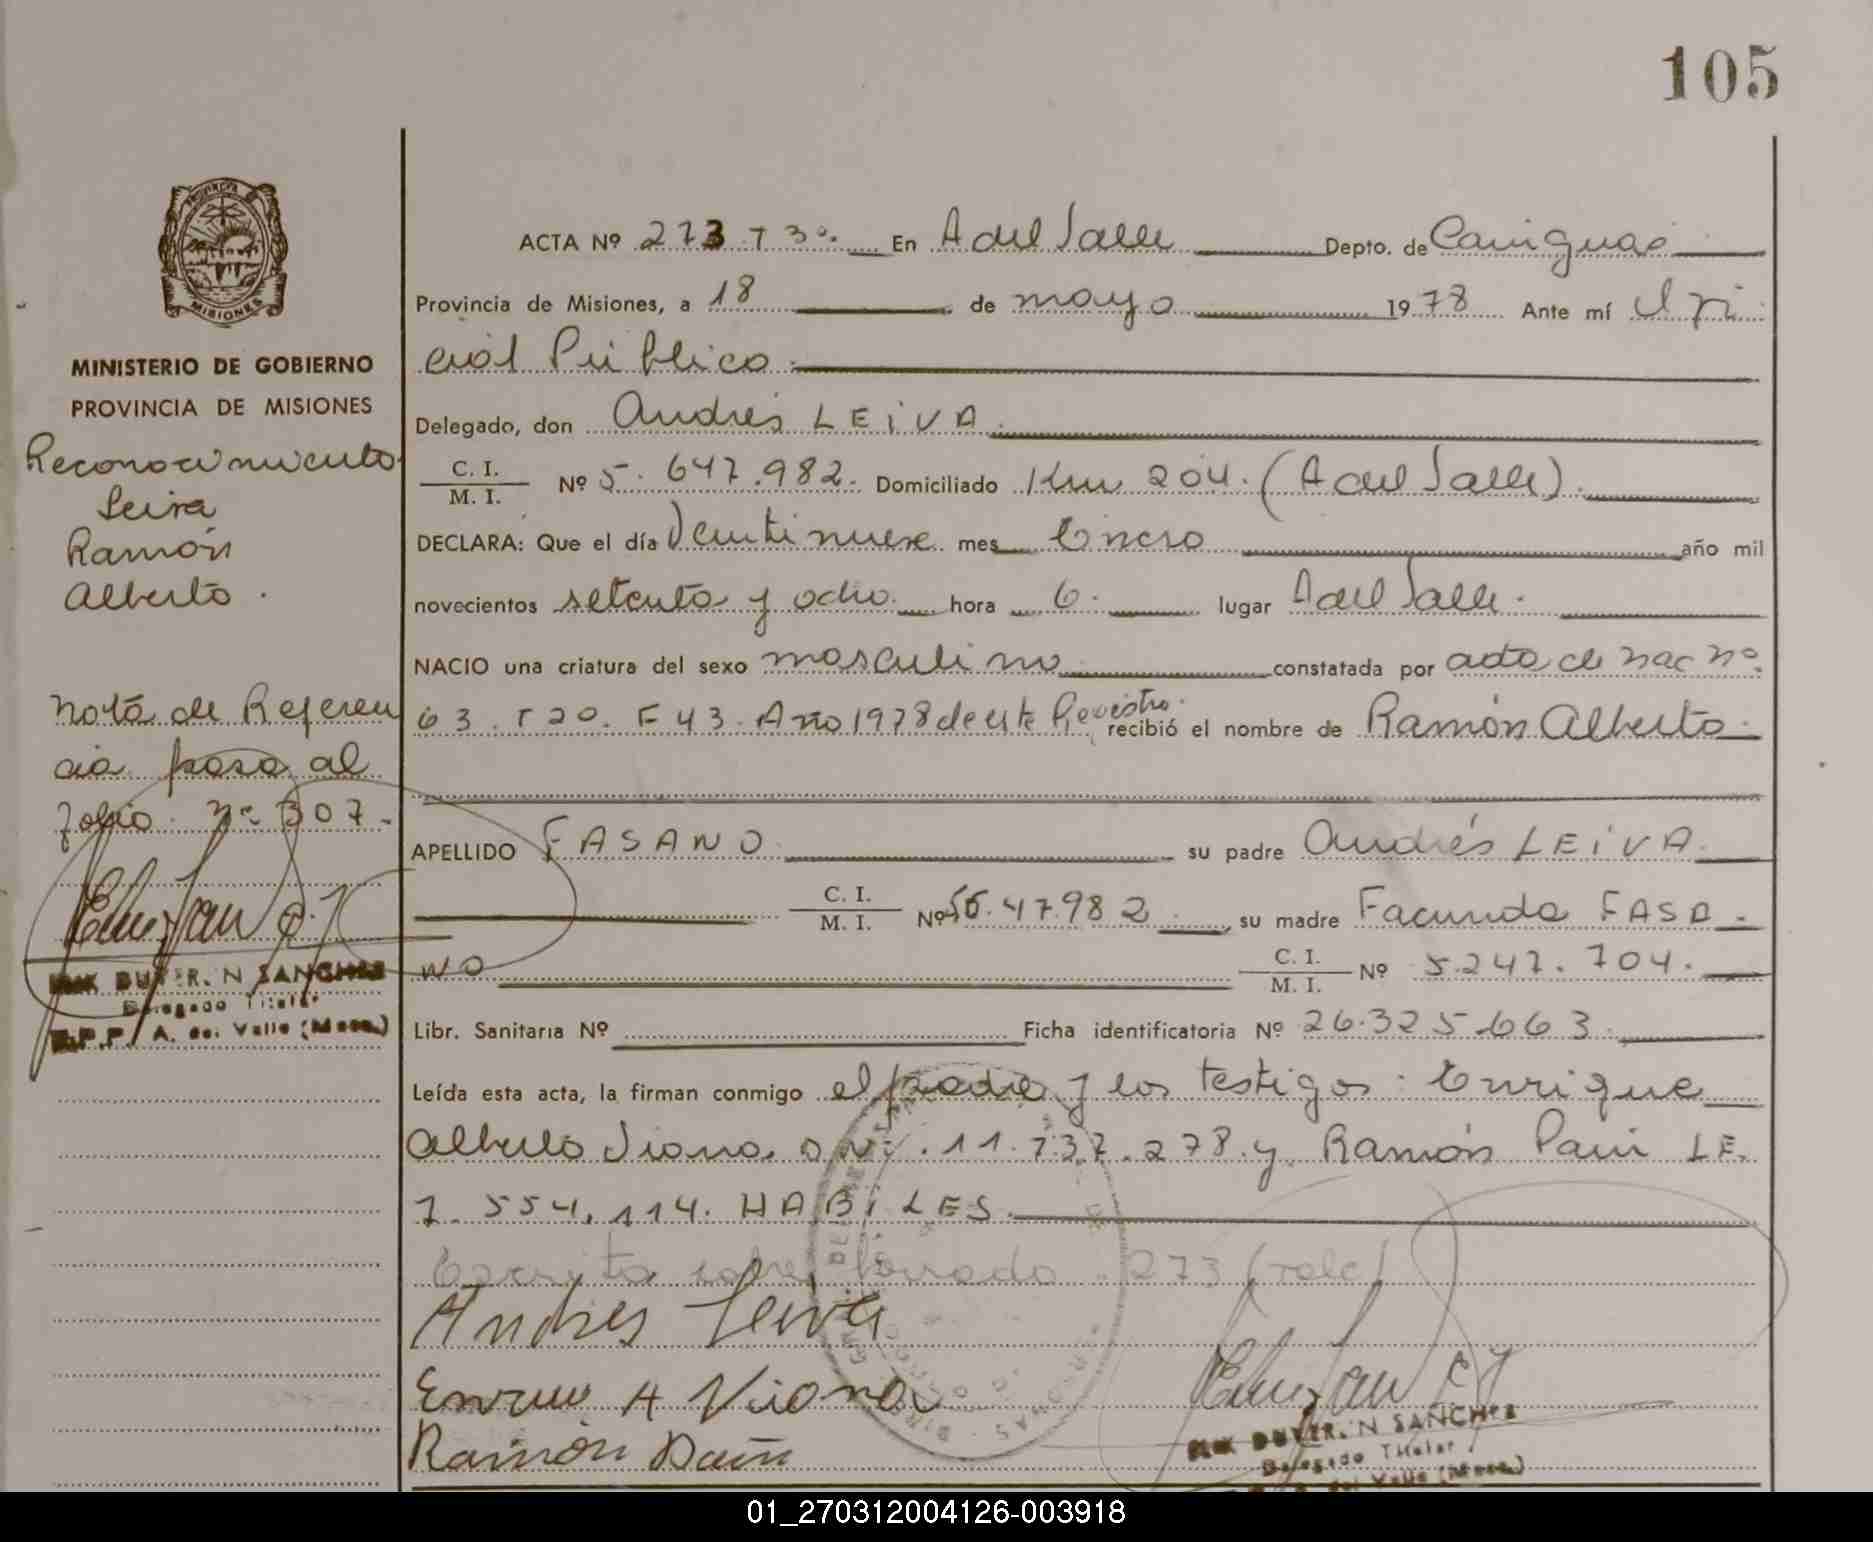 105
PROVINCIA DE
MISIONES
MINISTERIO DE GOBIERNO
PROVINCIA DE MISIONES
Reconocimiento
Leiva
Ramón
Alberto.
Nota de Referen
cia pasa al
folio nº 307.-
SANCHEZ
Delegado Titular
R.P.P. A. del Valle (Mnes.)
ACTA Nº 273 T 3º. En A del Valle Depto. de Cainguás
Provincia de Misiones, a 18 de mayo 1978 Ante mí Ofi
cial Público
Delegado, don Andrés LEIVA.
C. I.
M. I. Nº 5.647.982. Domiciliado Km 204. (A del Valle).
DECLARA: Que el día Veintinueve mes Enero año mil
novecientos setenta y ocho hora 6. lugar A del Valle.
NACIO una criatura del sexo masculino constatada por acta de nac nº.
63. T 20. F 43. Año 1978 de este Registro. recibió el nombre de Ramón Alberto.
APELLIDO FASANO su padre Andrés LEIVA.
C. I.
M. I. Nº 5647982 su madre Facunda FASA-
NO C. I.
M. I. Nº 5.247.704.
Libr. Sanitaria Nº Ficha identificatoria Nº 26.325.663.
Leída esta acta, la firman conmigo el padre y los testigos: Enrique
Alberto Viana. DNI. 11.737.278 y Ramón Paiú LE.
7.554.114. HABILES.
Escrito sobre borrado. 273 (vale)
Andres Leiva
Enrriue A Viana
Ramón
SANCHEZ
Delegado Titular
del Valle (Mnes.)
01_270312004126-003918